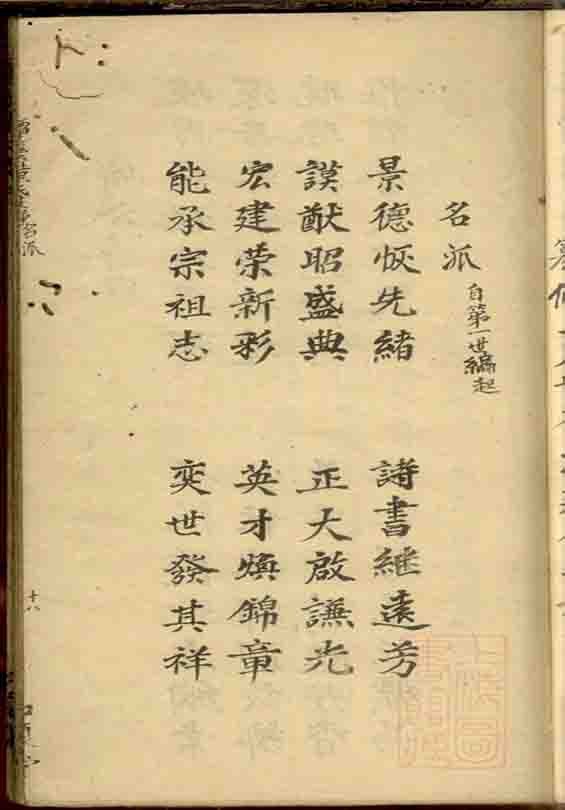 名派 自第一世編起
景德恢先緒 詩書繼遠芳
謨猷昭盛典 正大啟謙光
宏建荣新彩 英才煥錦章
能承宗祖志 奕世發其祥
十八